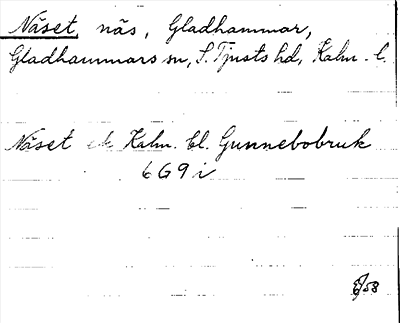 Näset näs, Gladhammar,
Gladhammars sn, S. Tjusts hd, Kalm. l.
Näset ek Kalm. bl. Gunnebobruk
6G9i